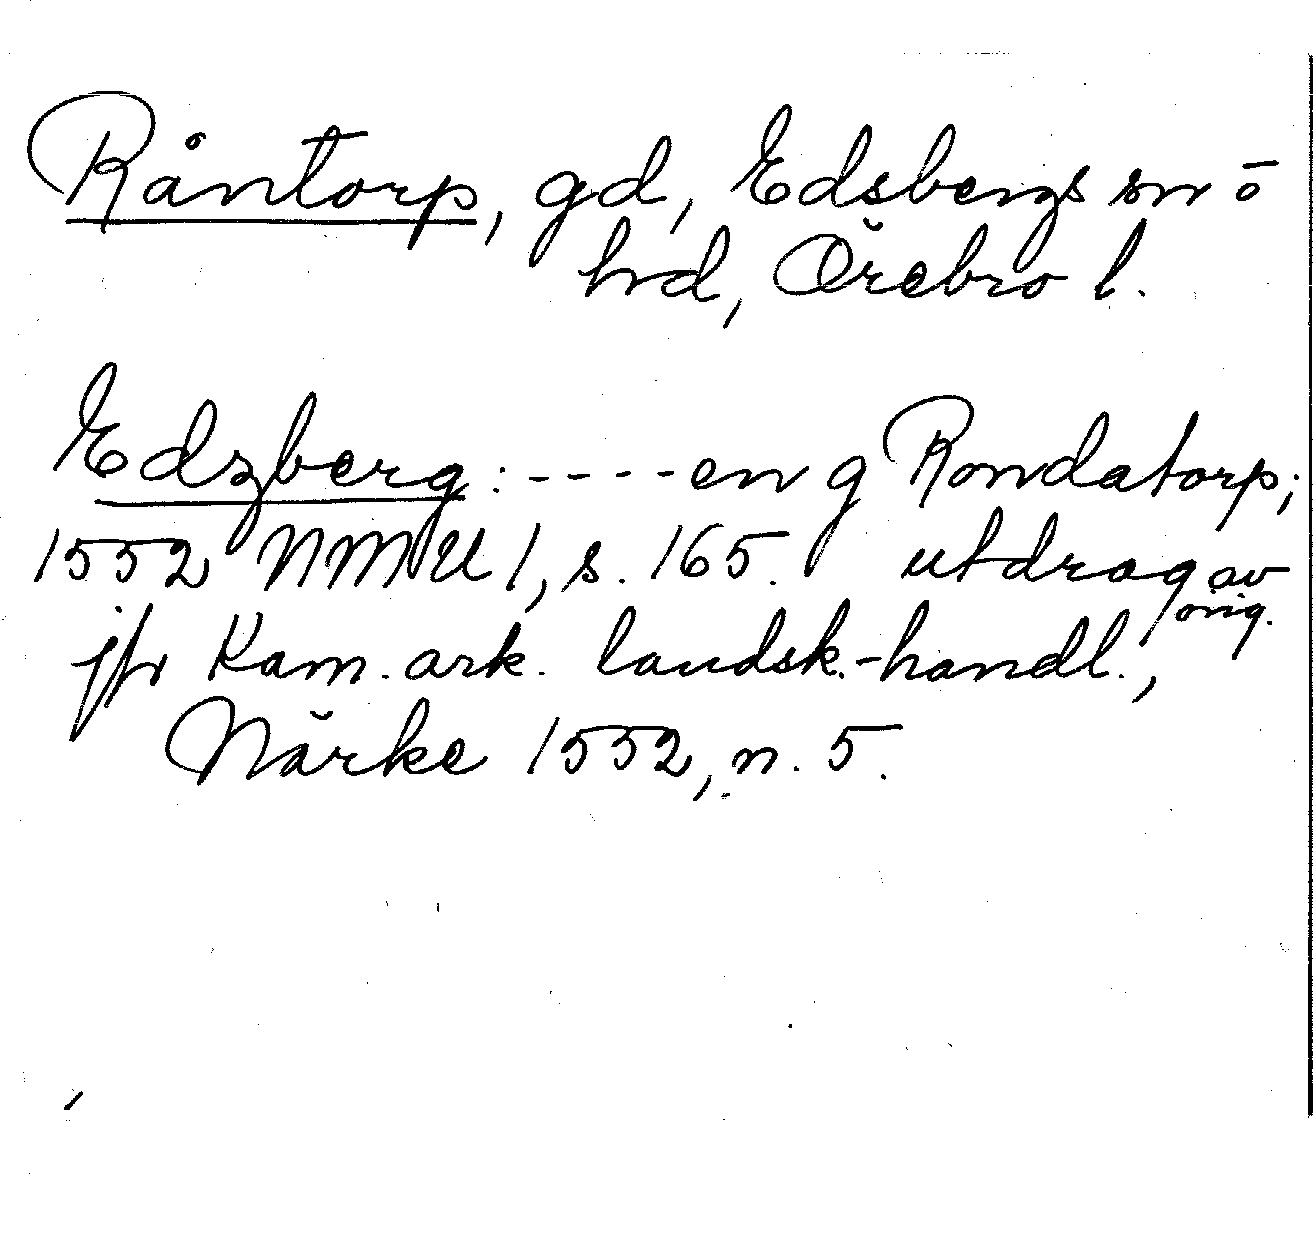 Råntorp, gd, Edsbergs sn o
hd, Örebro l.
Edzberg: ---- en g Rondatorp;
1552 NMU 1, s. 165. utdrag av orig.
jfr Kam. ark. landsk.-handl.,
Närke 1552, n. 5.